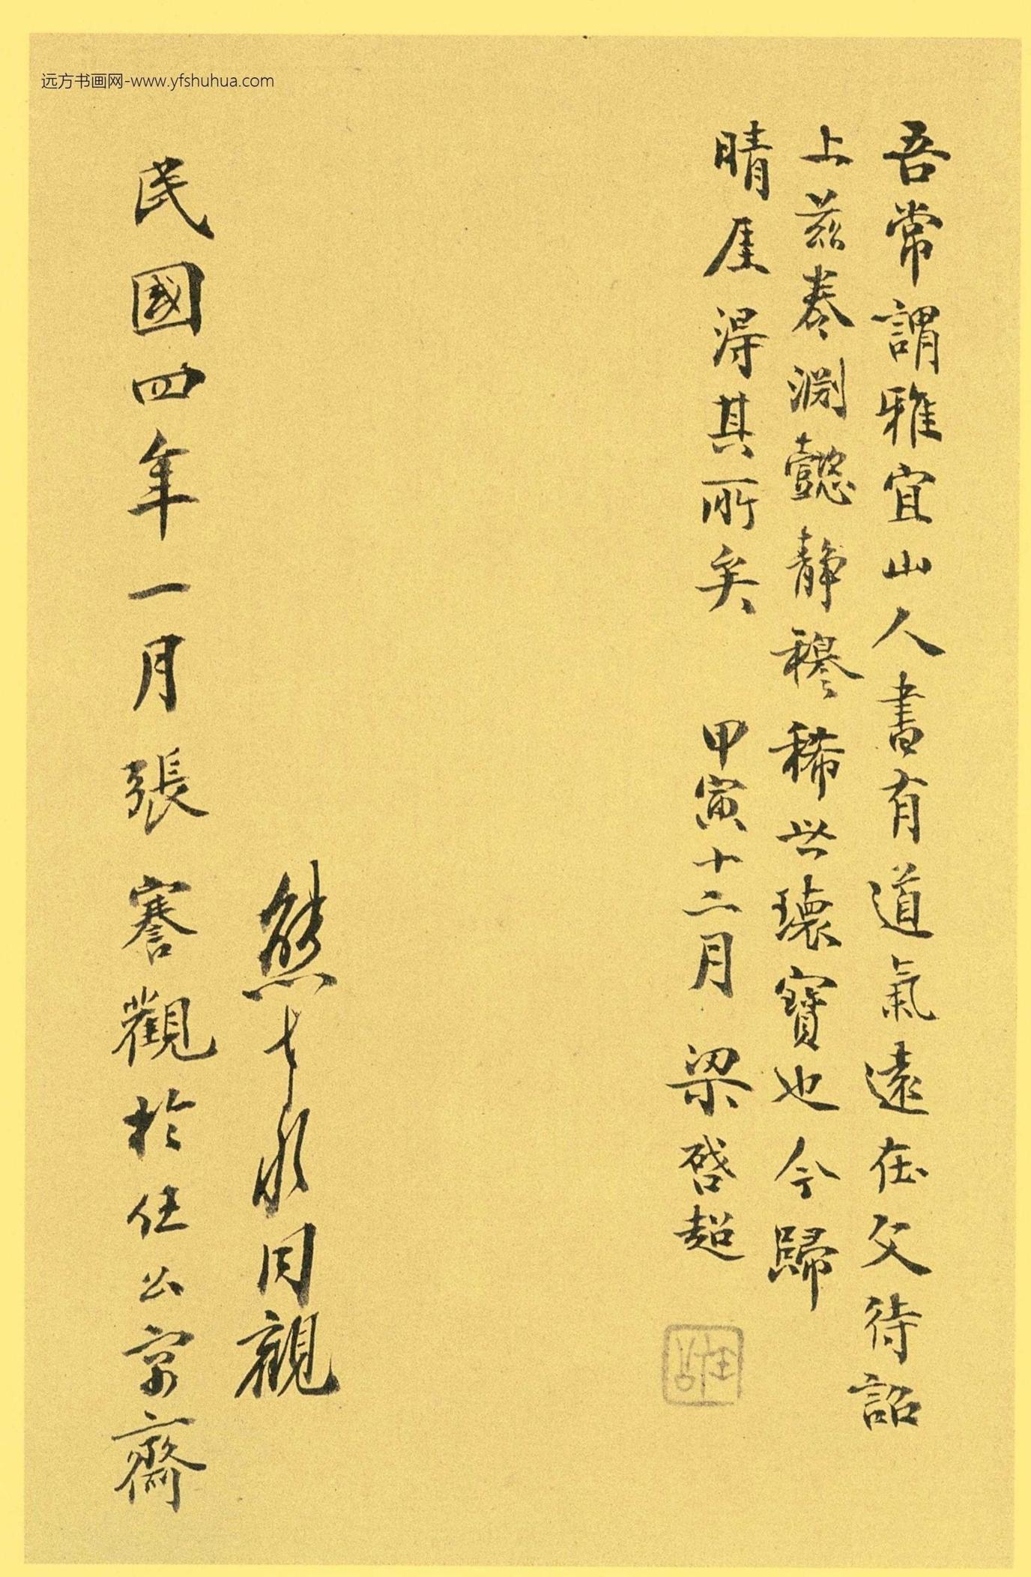 远方书画网-www.yfshuhua.com
吾常謂雅宜山人書有道氣遠在文待詔
上茲卷淵懿靜穆稀世瓌寶也今歸
晴厓得其所矣 甲寅十二月 梁啓超
任公
熊 同觀
民國四年一月張謇觀於任公寓齋